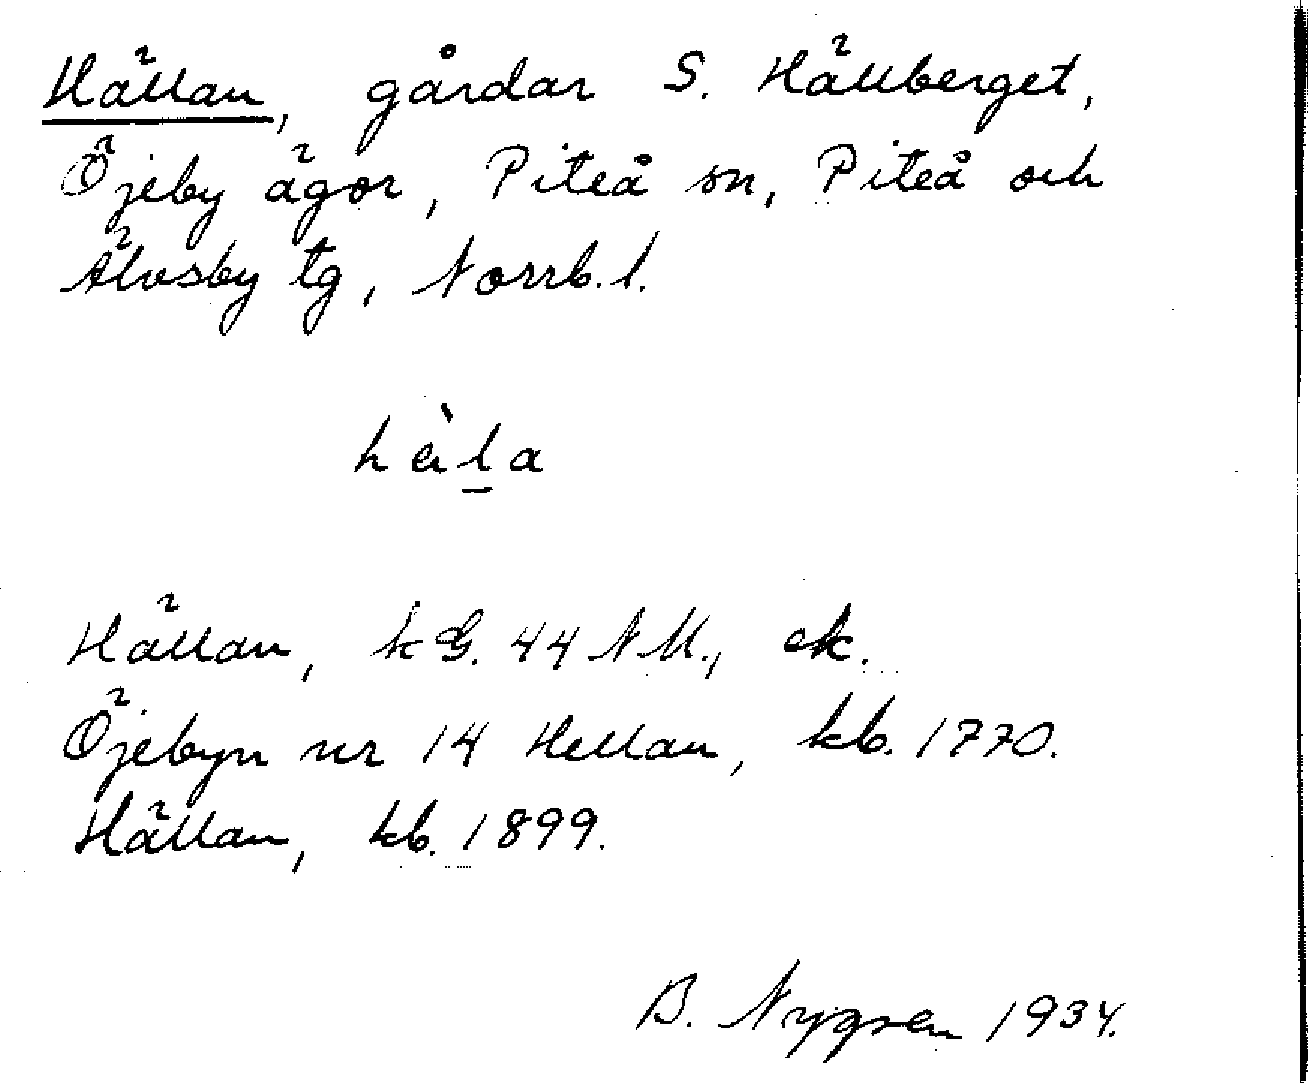 Hällan, gårdar S. Hällberget,
Öjeby ägor, Piteå sn, Piteå och
Älvsby tg, Norrb. l.
hàl̠a
Hällan, kG. 44 NM., ek.
Öjebyn nr 14 Hellan, kb. 1770.
Hällan, kb. 1899.
B. Nygren 1934.